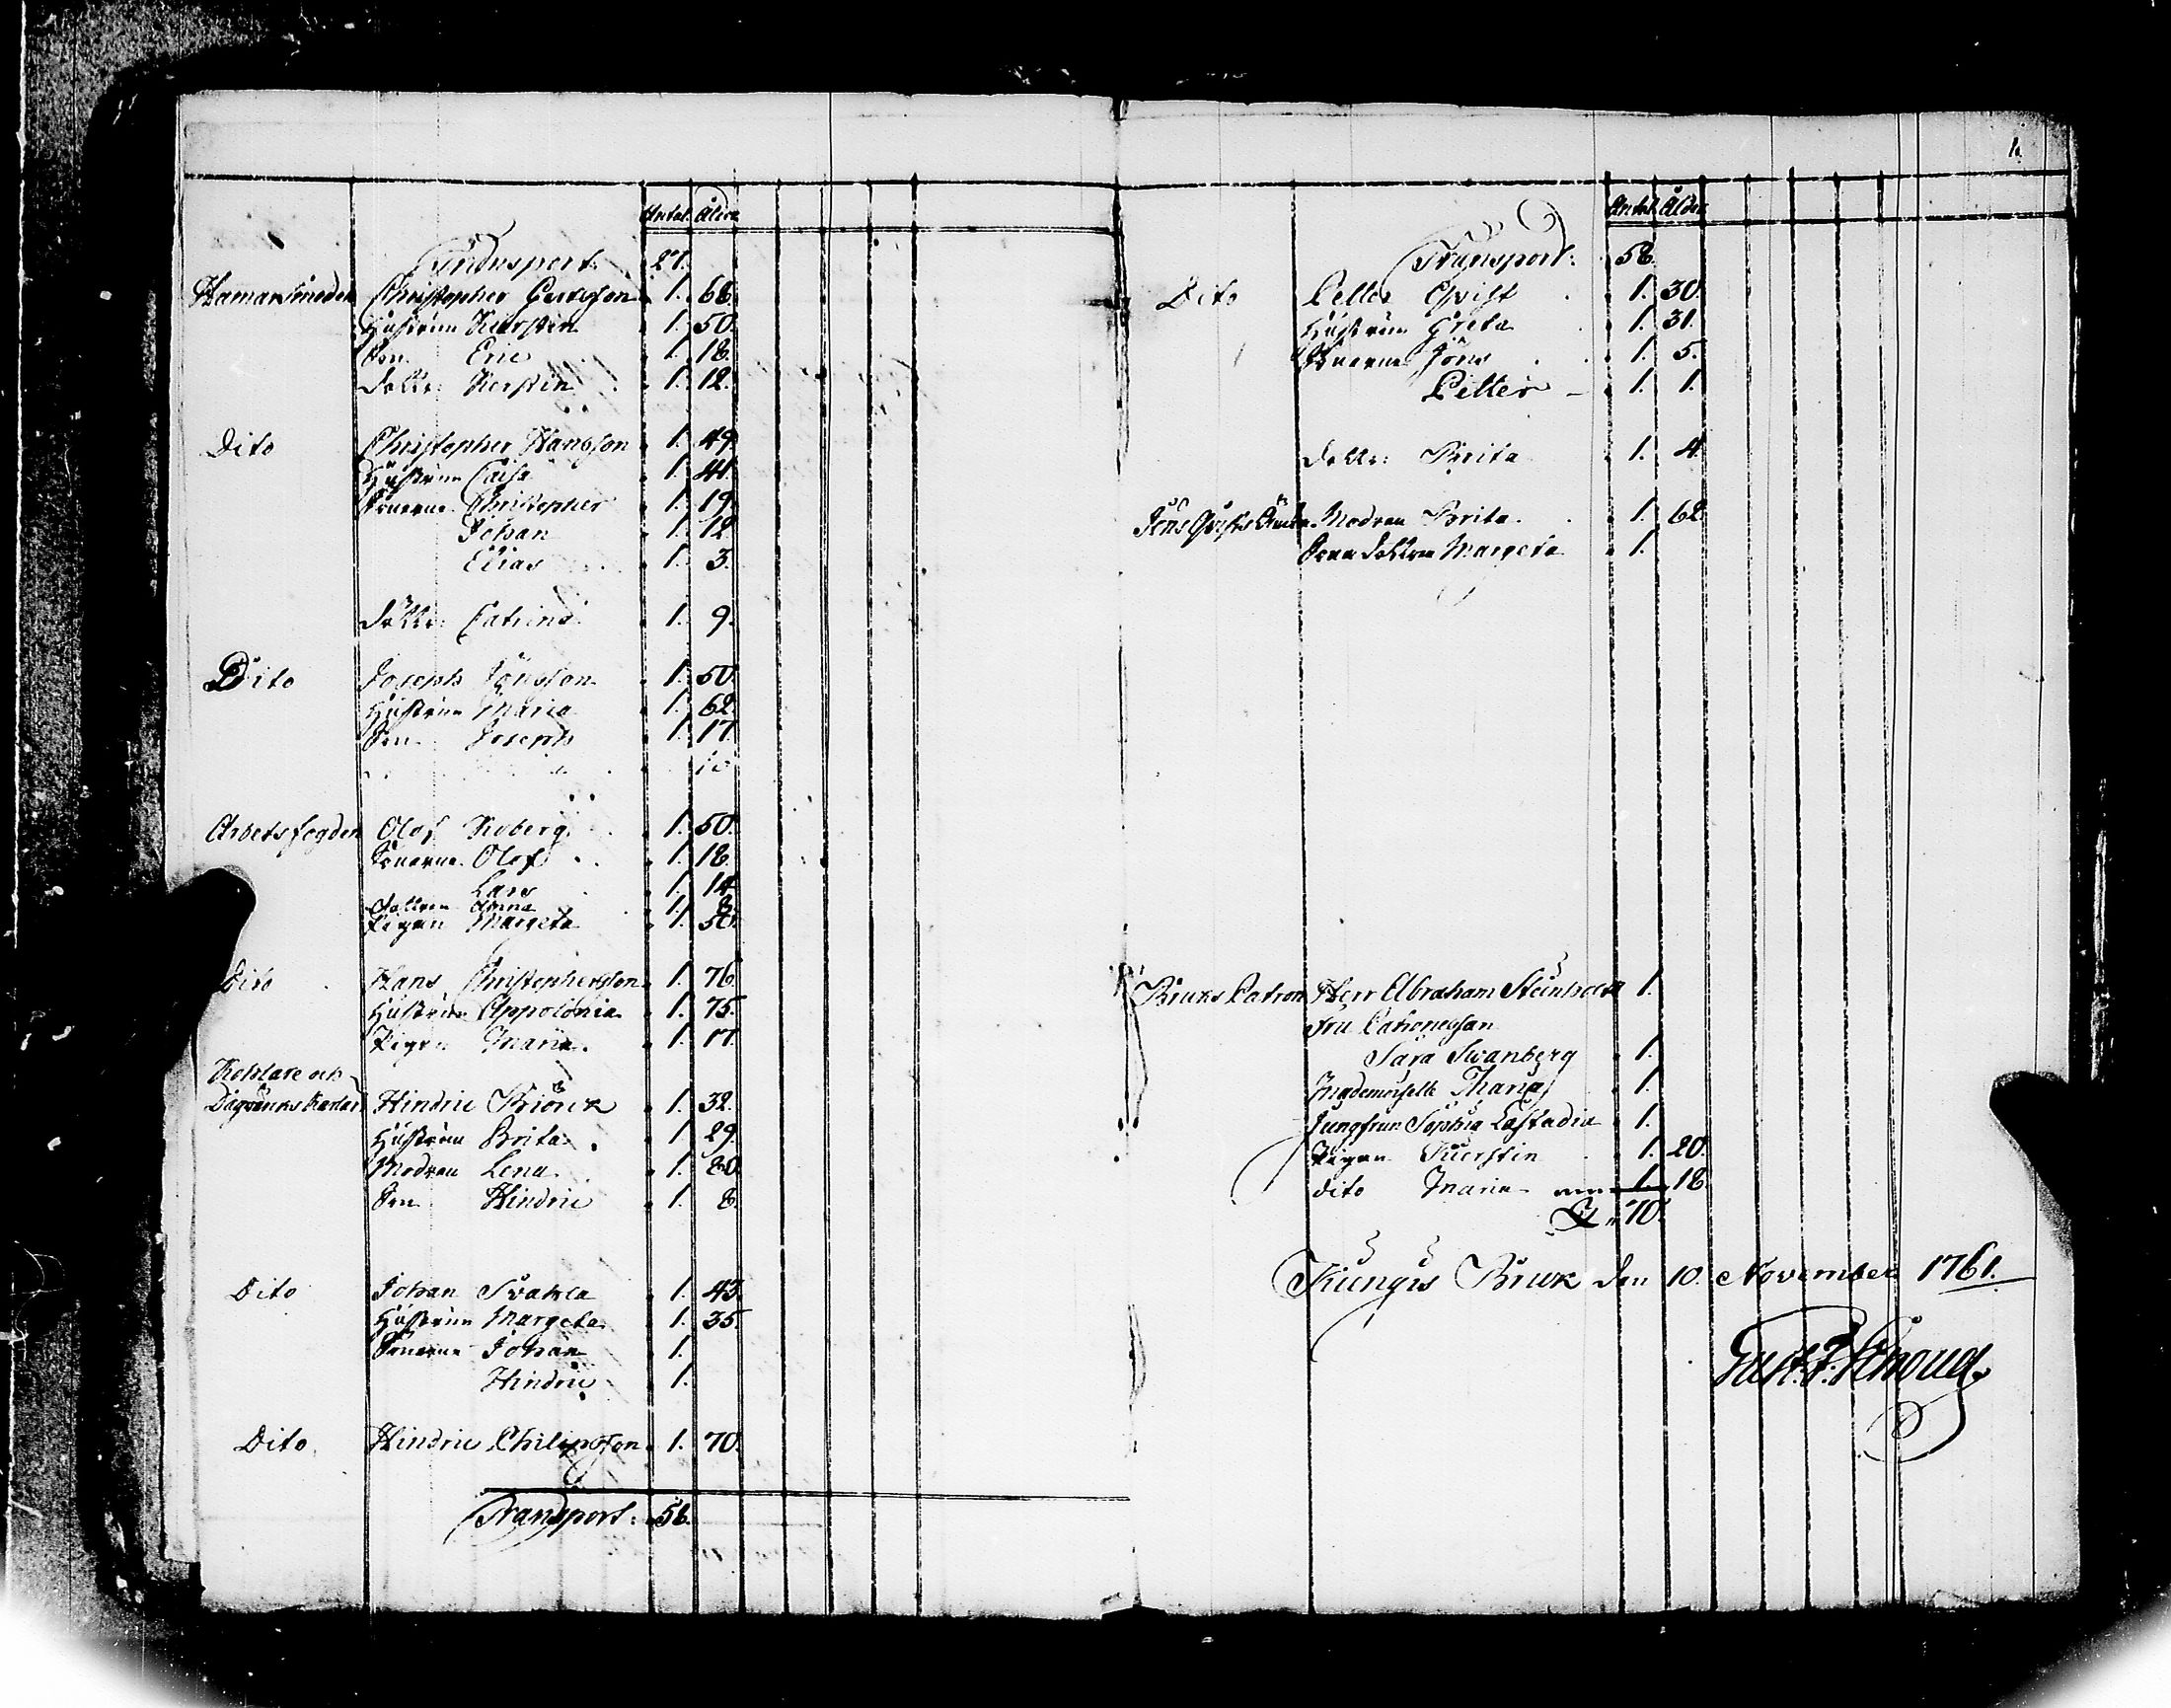 Antal. Ålder
Transport. 27.
Hamarsmeden Christopher Gertsson 1. 68.
Hustrun Kierstin 1. 50.
Son Eric 1. 18.
Dotter: Kerstin 1. 12.
Dito Christopher Hansson 1. 49.
Hustrun Caisa 1. 41.
Sönerne Christopher 1. 19.
Johan 1. 12.
Elias 1. 3.
Dotter: Catrina 1. 9.
Dito Joseph Jönsson 1. 50.
Hustrun Maria 1. 62.
Son Joseph 1. 17.
Arbetsfogden Olof Roberg 1. 50.
Sönerne Olof 1. 18.
Lars 1. 14
Dottren Anna 1. 8.
Pigan Margeta 1. 50.
Dito Hans Christophersson 1. 76.
Hustrun Appolonia 1. 75.
Pigan Maria 1. 17.
Kohlare och
Dagwärks Karlar Hindric Biörck 1. 32.
Hustrun Brita 1. 29.
Modren Lena 1. 80.
Son Hindric 1. 8.
Dito Johan Svahla 1. 43.
Hustrun Margeta 1. 35.
Sönerne Johan 1.
Hindric 1.
Dito Hindric Philipsson 1. 70.
Transport: 58.
1.
Antal. Ålder
Transport: 58.
Dito Petter Qvist 1. 30.
Hustrun Greta 1. 31.
Sönerne Jöns 1. 5.
Petter 1. 1.
Dotter: Brita 1. 4.
Jöns Qvists Änka Modren Brita 1. 62.
Sona dottren Margeta 1.
Bruks Patron Herr Abraham Steinholtz 1.
Fru Patronessan
Sara Swanberg 1.
Mademoiselle Thang 1.
Jungfrun Sophia Læstadia 1.
Pigan Kierstin 1. 20.
dito Maria 1. 18.
70.
Kiengis Bruk den 10. November 1761.